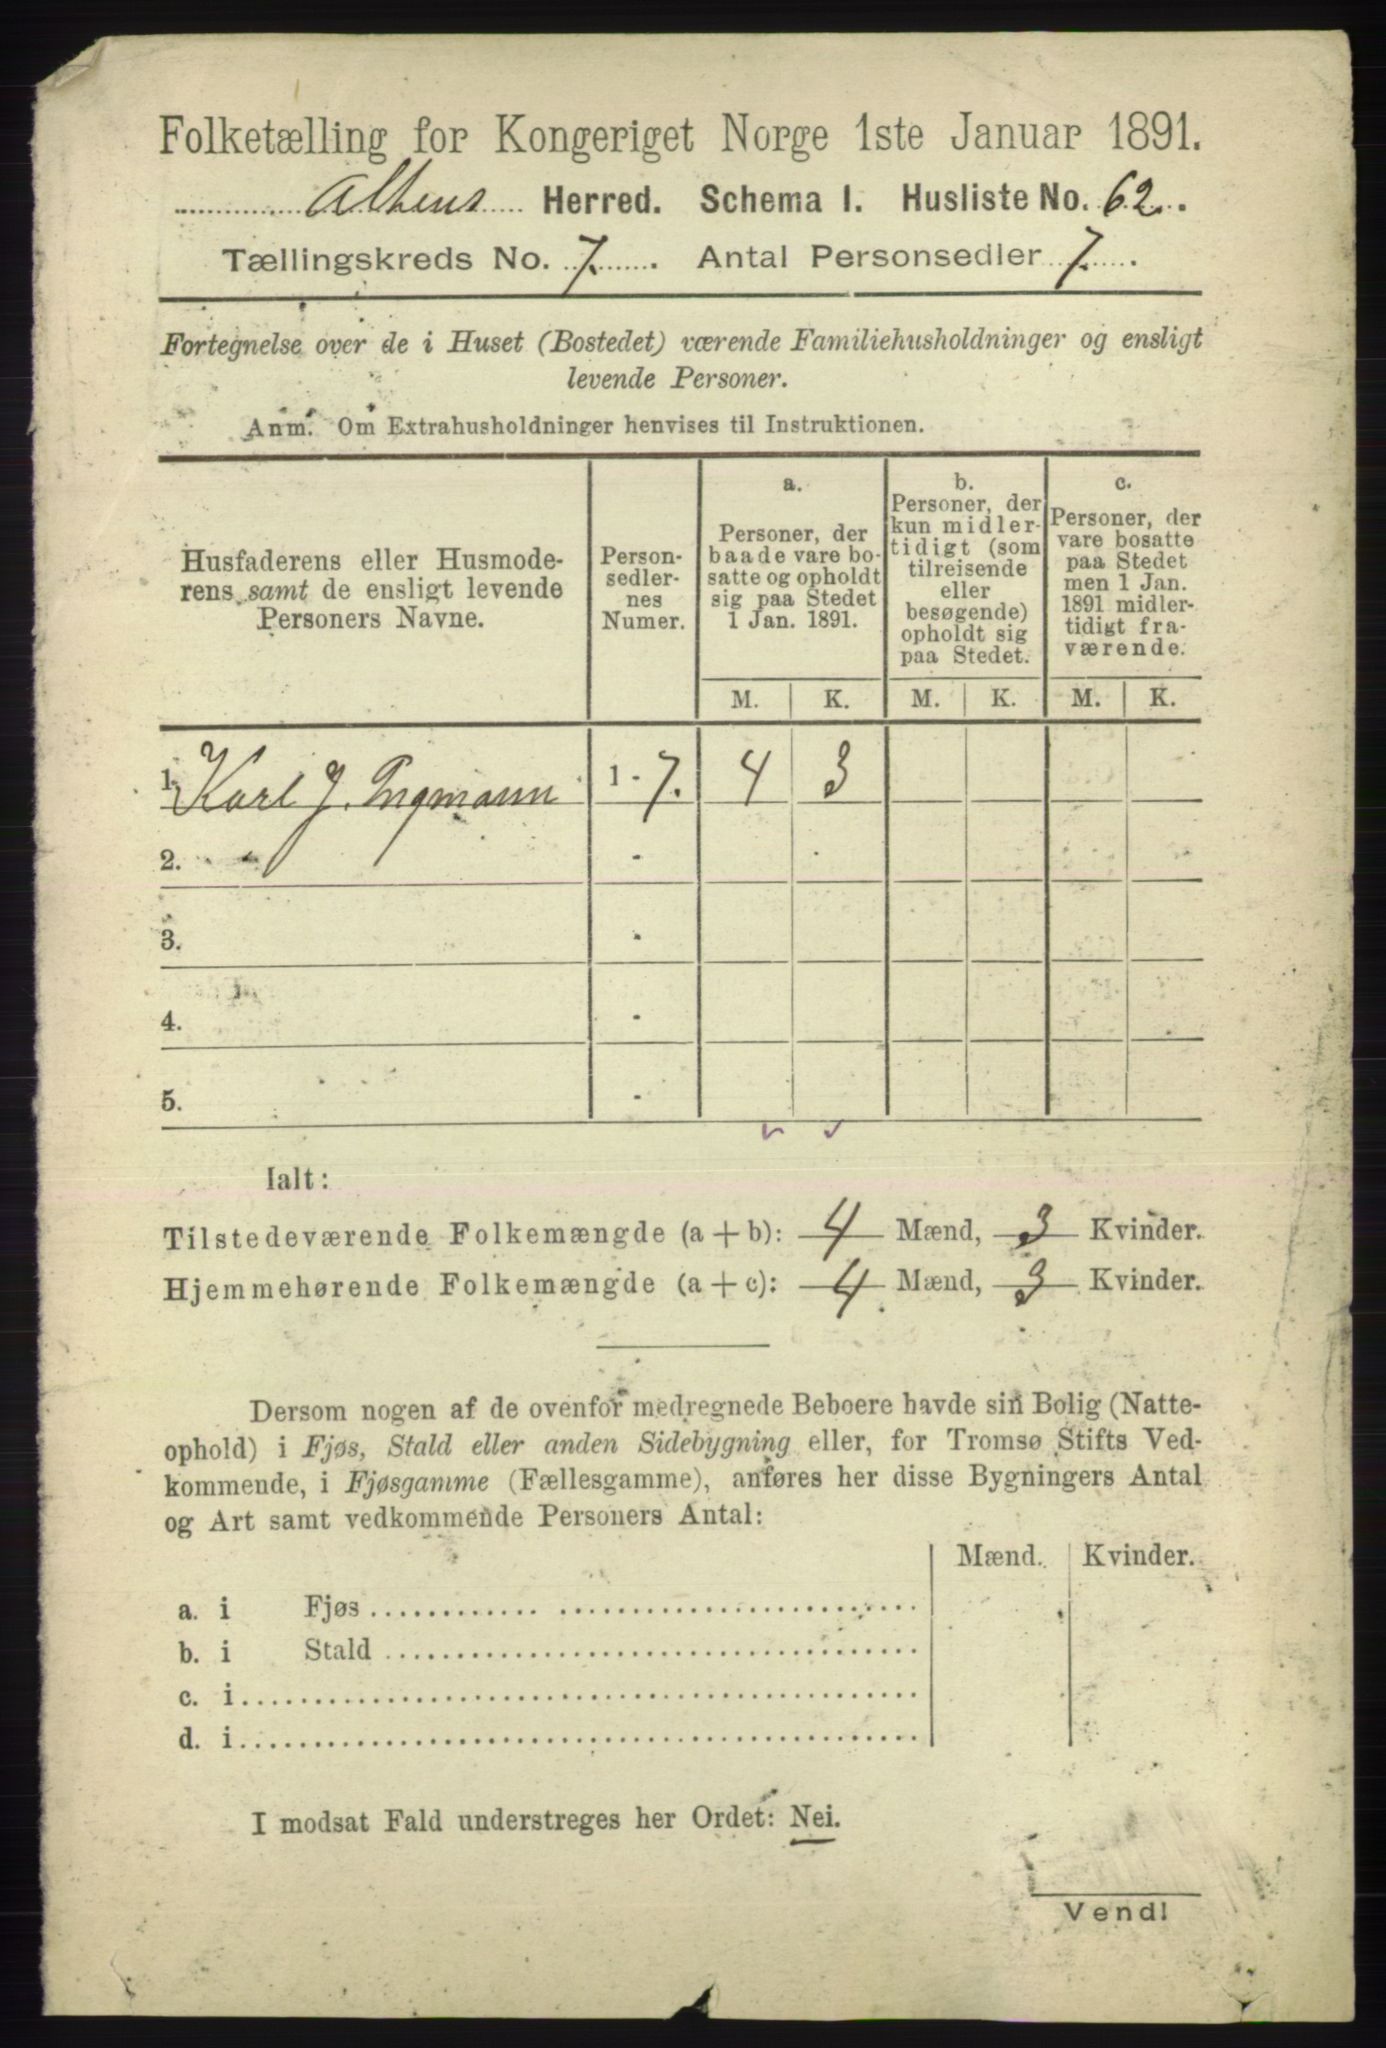 Folketælling for Kongeriget Norge 1ste Januar 1891.
Altens Herred. Schema I. Husliste No. 62.
Tællingskreds No. 7. Antal Personsedler 7.
Fortegnelse over de i Huset (Bostedet) værende Familiehusholdninger og ensligt
levende Personer.
Anm. Om Extrahusholdninger henvises til Instruktionen.
Husfaderens eller Husmode-
rens samt de ensligt levende
Personers Navne.
Person-
sedler-
nes
Numer.
a.
Personer, der
baade vare bo-
satte og opholdt
sig paa Stedet
1 Jan. 1891.
b.
Personer, der
kun midler-
tidigt (som
tilreisende
eller
besøgende)
opholdt sig
paa Stedet.
c.
Personer, der
vare bosatte
paa Stedet
men 1 Jan.
1891 midler-
tidigt fra-
værende.
M. K. M. K. M. K.
1. Karl J. Ingmann 1 - 7. 4 3
2. -
3. -
4. -
5. -
Ialt:
Tilstedeværende Folkemængde (a + b): 4 Mænd, 3 Kvinder.
Hjemmehørende Folkemængde (a + c): 4 Mænd, 3 Kvinder.
Dersom nogen af de ovenfor medregnede Beboere havde sin Bolig (Natte-
ophold) i Fjøs, Stald eller anden Sidebygning eller, for Tromsø Stifts Ved-
kommende, i Fjøsgamme (Fællesgamme), anføres her disse Bygningers Antal
og Art samt vedkommende Personers Antal:
Mænd. Kvinder.
a. i Fjøs
b. i Stald
c. i
d. i
I modsat Fald understreges her Ordet: Nei.
Vend!